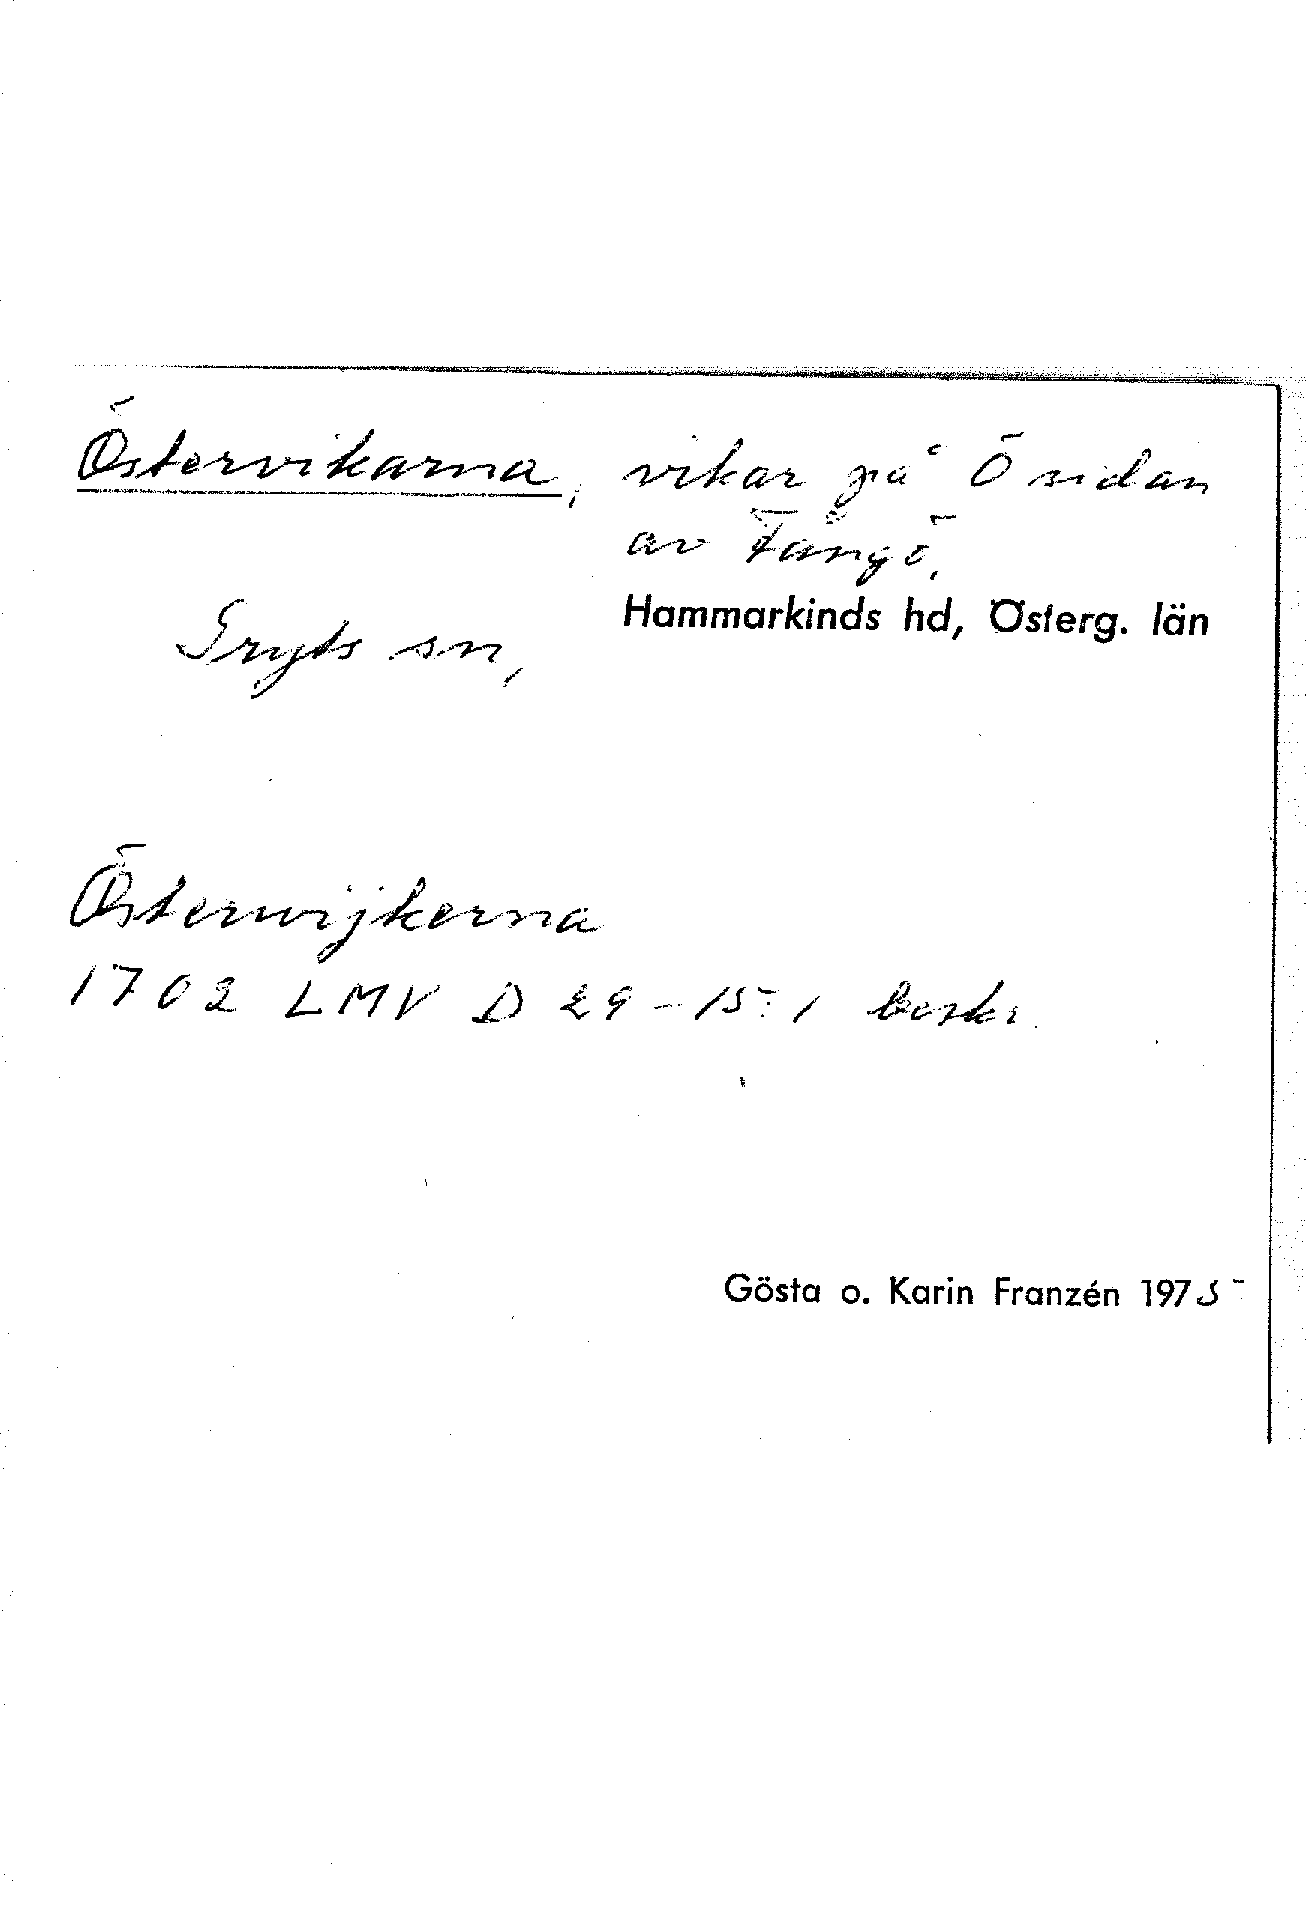 Östervikarna, vikar på Ö sidan
av Fångö,
Gryts sn, Hammarkinds hd, Österg. län
Österwijkerna
1702 LMV D 29-15:1 beskr.
Gösta o. Karin Franzén 1975